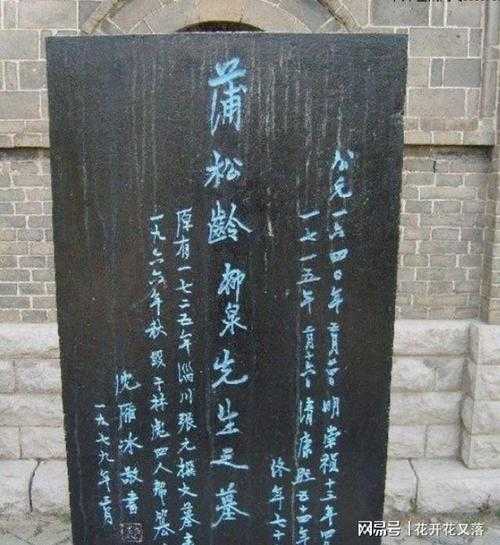 公元一六四〇年 明崇禎十三年四
一七一五年 清康熙五十四年
終年七十
蒲松齡柳泉先生之墓
原有一七二五年淄川張元撰文墓表
一九六六年秋毁于林彪四人幫
沈雁冰敬書
一九七九年二月
网易号 | 花开花又落